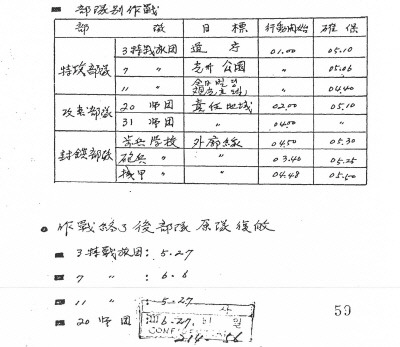 ■ 部隊別作戰
部 隊 目 標 行動開始 確保
特攻部隊 3特戰旅団 道庁 01.00 05.10
7 〃 光州公園 〃 05.06
11 〃 〃 04.40
攻擊部隊 20 師団 責任地域 02.00 05.10
31 師団 〃 04.00 〃
封鎖部隊 步兵學校 外廓線 04.50 05.30
砲兵 〃 〃 03.40 05.25
機甲 〃 〃 04.48 05.50
● 作戰終了後部隊 原隊復敀
■ 3特戰旅団: 5.27
■ 7 〃 : 6.6
■ 11 〃 : 5.27
■ 20 師団: 6.27.
59
CONF
214-56